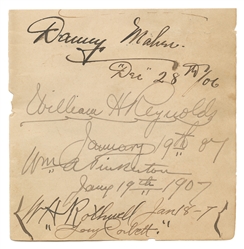 Danny Maher.
"Dec" 28th/06
William H Reynolds
January 19th 07
Wm A Pinkerton
Jany 19th 1907
W A Rothwell Jan 18-7
"Young Corbett"